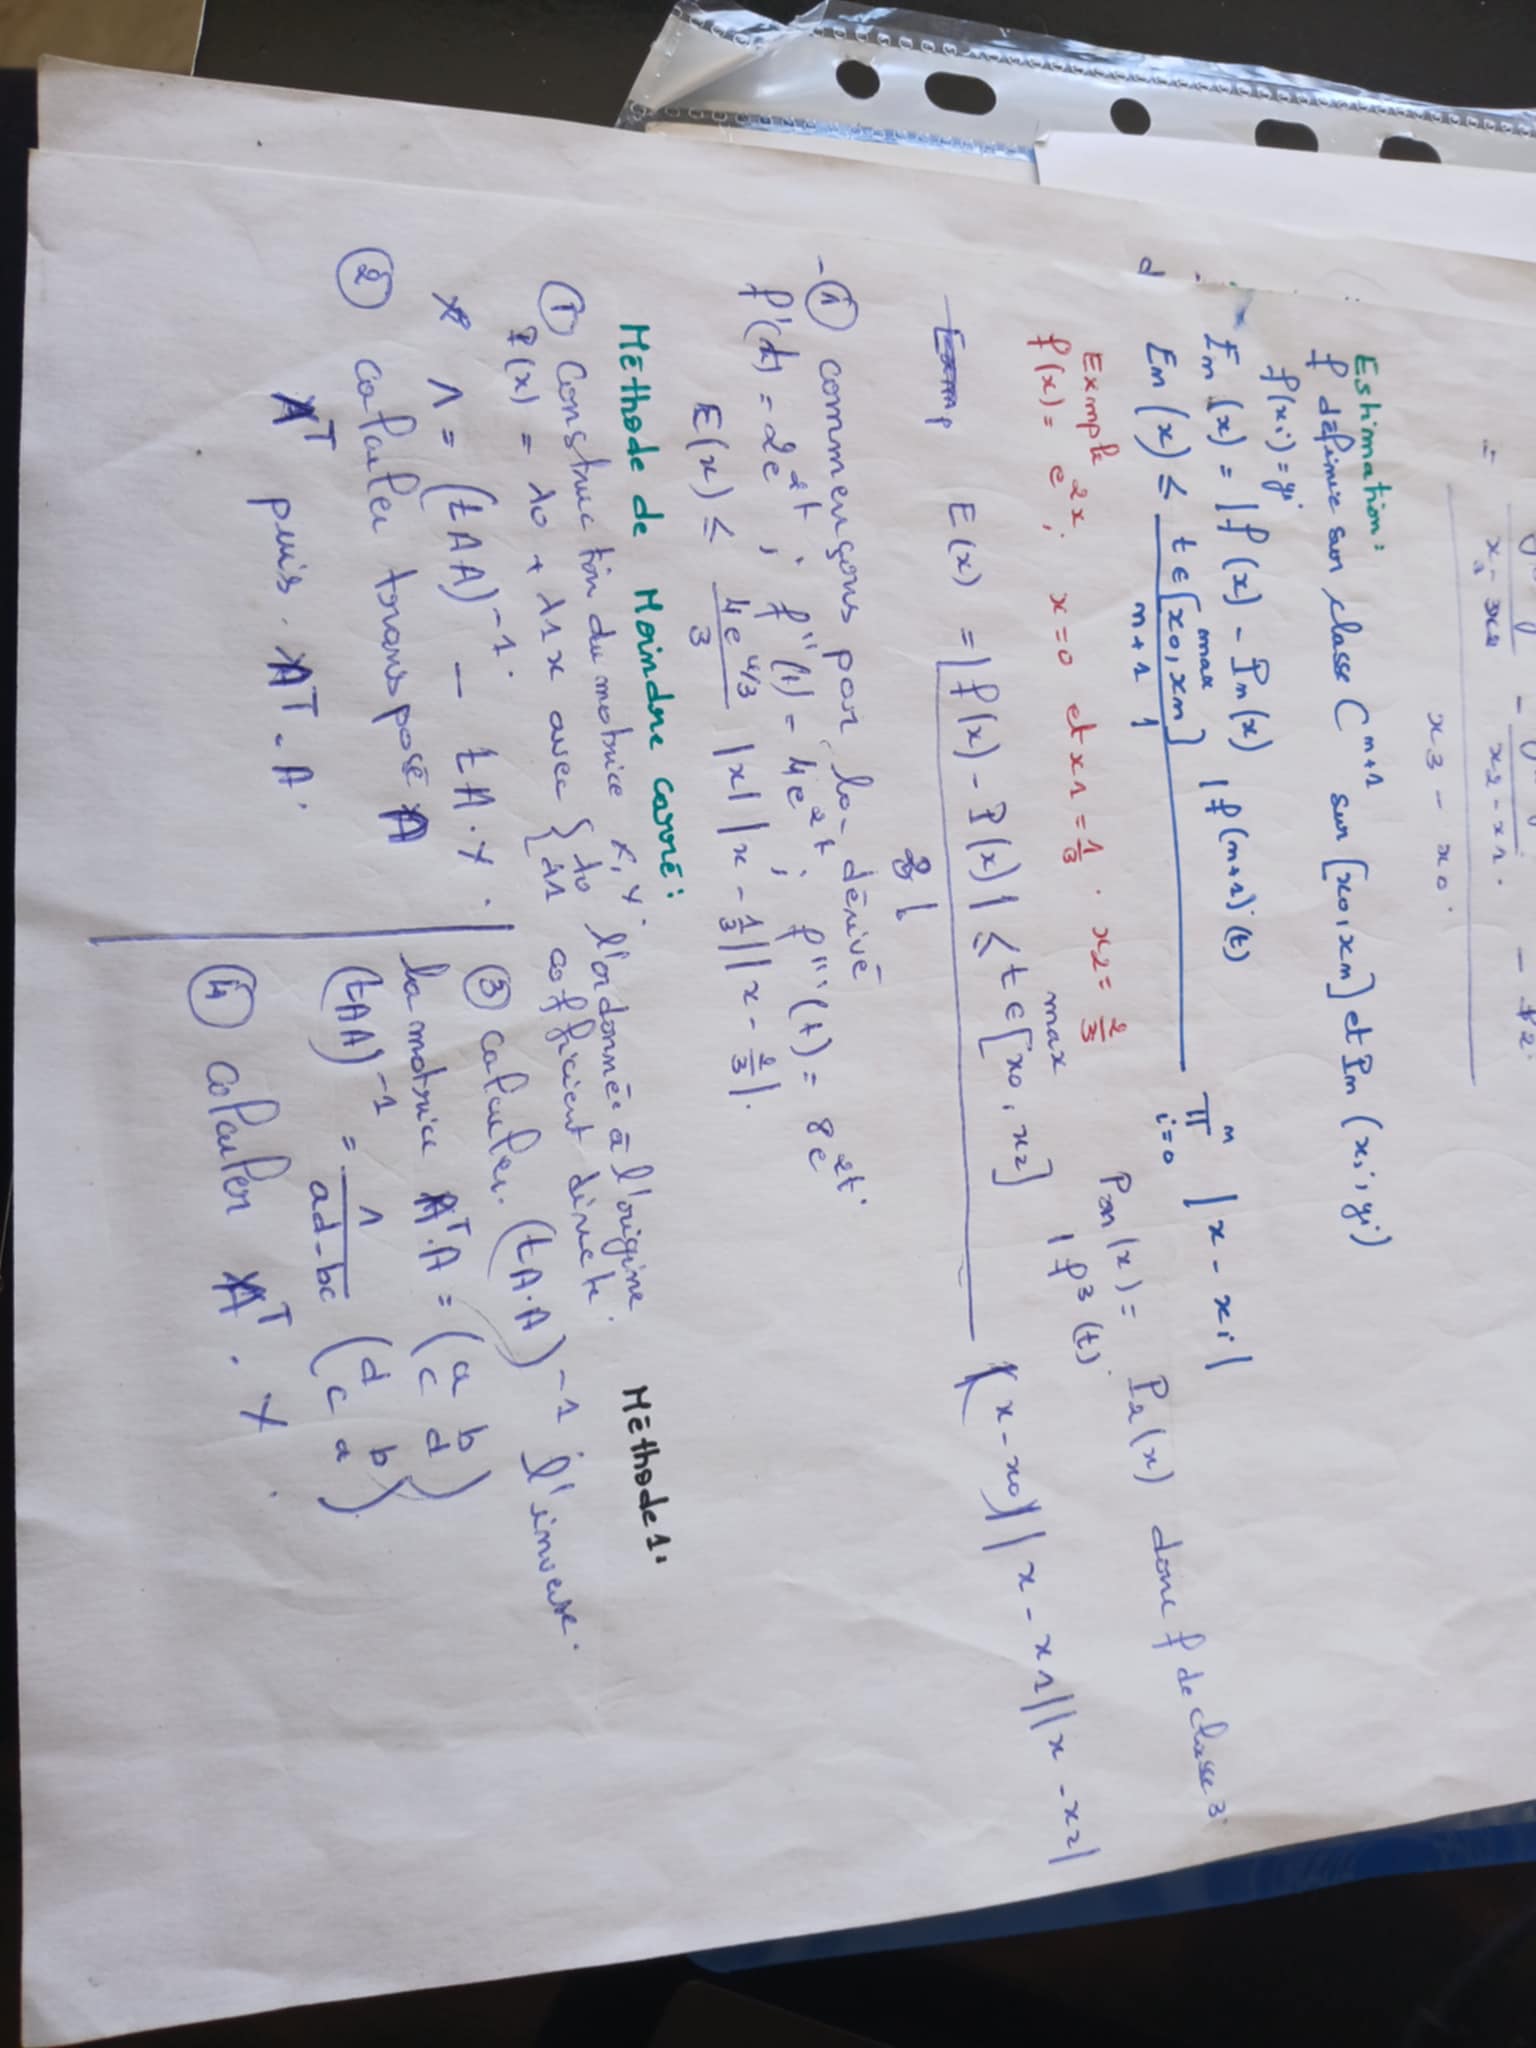 =
x3 - x0.
Estimation:
f définie sur classe C^n+1 sur [x0, xn] et Pn (xi, yi)
f(xi) = yi
En (x) = | f(x) - Pn(x)
En (x) ≤ max t ∈ [x0, xn] | f^(n+1) (t) / n+1 ! π i=0 n | x - xi |
Example
f(x) = e^2x ; x=0 et x1 = 1/3 . x2 = 2/3
Pn(x) = P2(x) donc f de classe 3.
E(x) = | f(x) - P(x) | ≤ max t ∈ [x0, x2] | f^3 (t). / 3! (x - x0| | x - x1 | | x - x2 |
- ① commençons par la dérivé
f'(t) = 2e^2t ; f''(t) = 4e^2t ; f'''(t) = 8e^2t.
E(x) ≤ 4e^4/3 / 3 |x| |x - 1/3| |x - 2/3|.
Méthode de Moindre carré: Méthode 1:
① Construction du matrice X, Y. l'ordonnée à l'origine.
P(x) = λ0 + λ1 x avec { λ0 λ1 coefficient directe.
* Λ = (tAA)^-1. - tA.Y.
② calculer transposé A
A^T puis. A^T. A.
③ calculer. (tA.A)^-1 ; l'inverse.
la matrice A^T.A = (a b c d)
(tAA)^-1 = 1 / ad-bc (d b c a).
④ calculer A^T . Y.